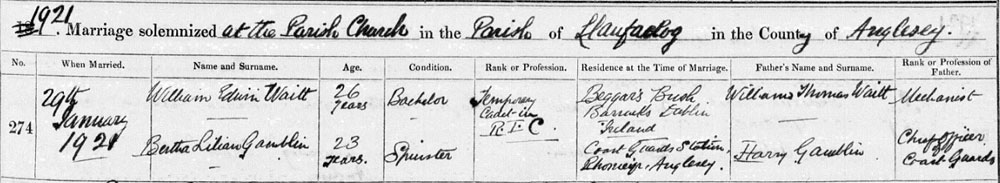 1921. Marriage solemnized at the Parish Church in the Parish of Llanfaelog in the County of Anglesey.
No. When Married. Name and Surname. Age. Condition. Rank or Profession. Residence at the Time of Marriage. Father's Name and Surname. Rank or Profession of Father.
274
29th
January
1921
William Edwin Waitt
26
years
Bachelor
Temporary
Cadet in
R.I.C.
Beggars Bush
Barracks Dublin
Ireland
William Thomas Waitt
Mechanist
Bertha Lilian Gamblin
23
years.
Spinster
Coast Guards Station,
Rhosneigr, Anglesey.
Harry Gamblin
Chief Officer
of
Coast Guards